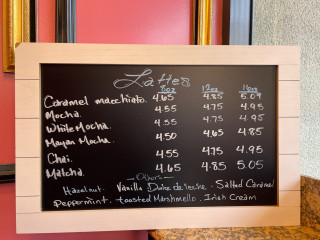 Lattes
8oz 12oz 16oz
Caramel macchiato. 4.65 4.85 5.09
Mocha. 4.55 4.75 4.95
White Mocha. 4.55 4.75 4.95
Mayan Mocha. 4.50 4.65 4.85
Chai. 4.55 4.75 4.95
Matcha. 4.65 4.85 5.05
Others
Hazelnut. Vanilla Dulce de leche. Salted Caramel
Peppermint. toasted Marshmello. Irish Cream